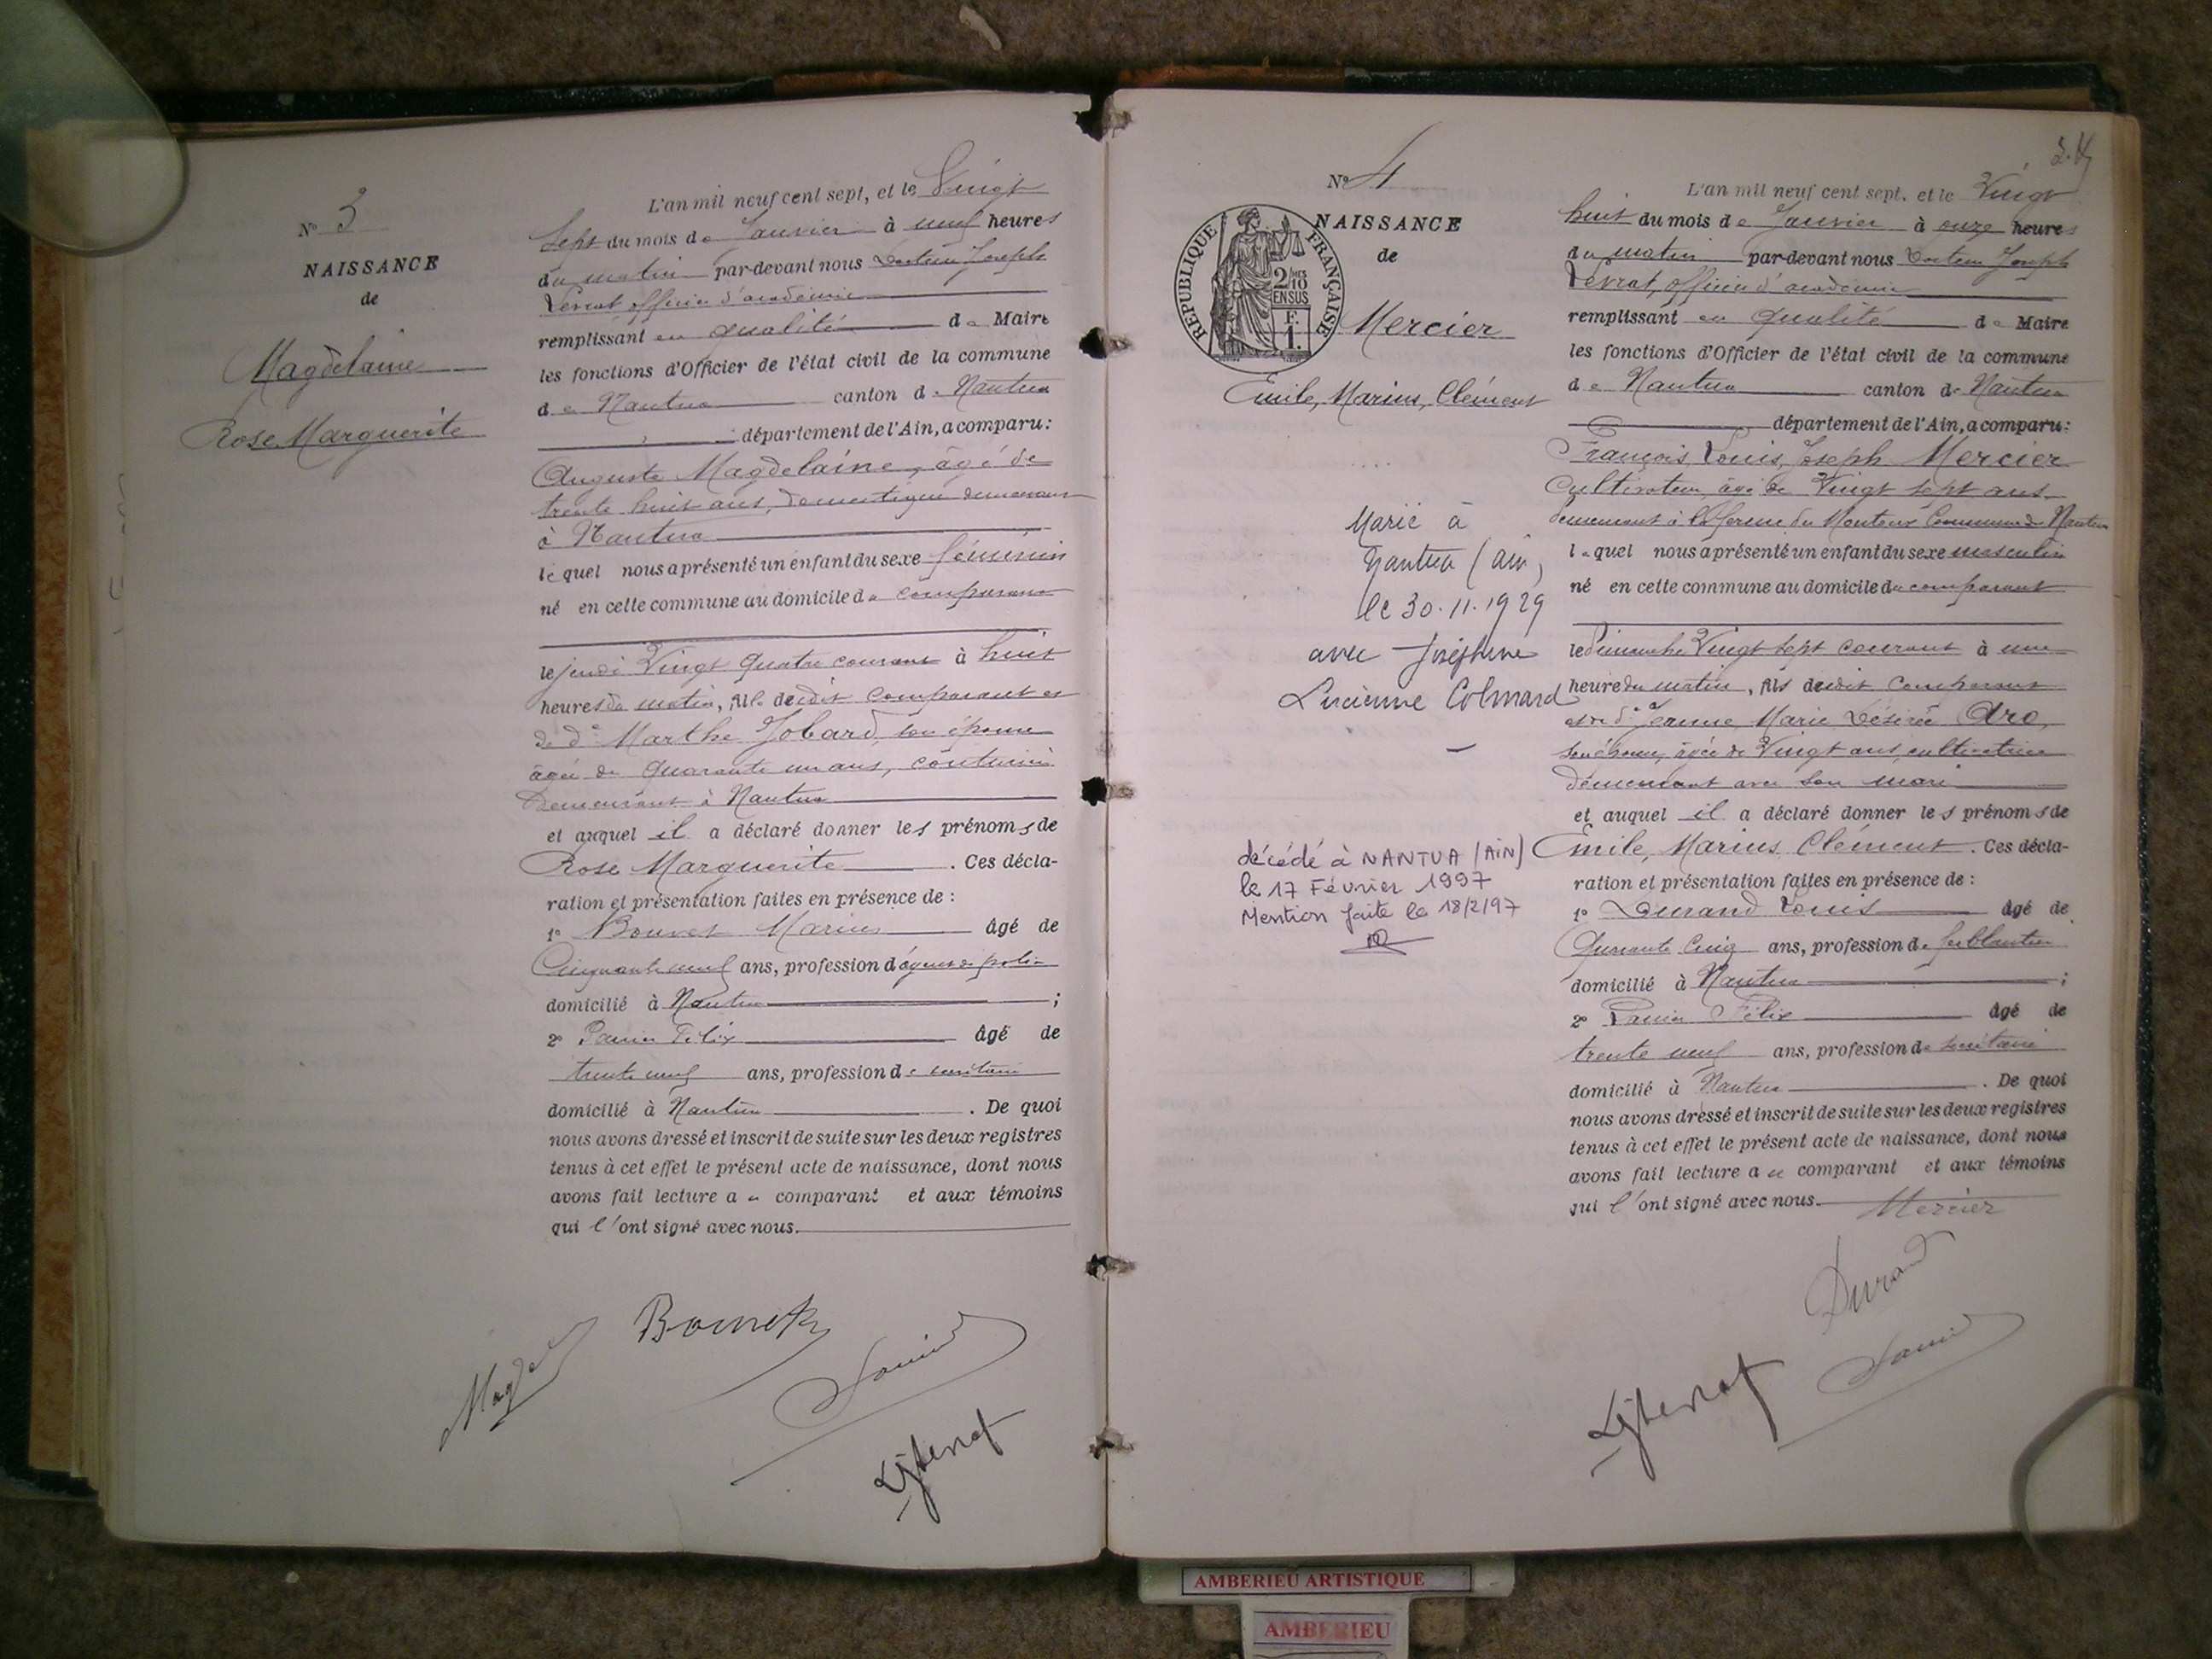 N° 3
NAISSANCE
de
Magdelaine
Rose Marguerite
L'an mil neuf cent sept, et le Vingt
sept du mois de Janvier à neuf heures
du matin par-devant nous Docteur Joseph
Levrat officier d'académie
remplissant en qualité de Maire
les fonctions d'Officier de l'état civil de la commune
de Nantua canton de Nantua
département de l'Ain, a comparu :
Auguste Magdelaine, âgé de
trente huit ans, domestique demeurant
à Nantua
lequel nous a présenté un enfant du sexe féminin
né en cette commune au domicile du comparant
le jeudi Vingt quatre courant à huit
heures du matin, fille dudit comparant et
de de Marthe Jobard, son épouse
âgée de quarante un ans,
demeurant à Nantua
et auquel il a déclaré donner les prénoms de
Rose Marguerite . Ces décla-
ration et présentation faites en présence de :
1° Bouvet Marius âgé de
Cinquante neuf ans, profession d'agent de police
domicilié à Nantua ;
2° Félix âgé de
trente neuf ans, profession de secrétaire
domicilié à Nantua . De quoi
nous avons dressé et inscrit de suite sur les deux registres
tenus à cet effet le présent acte de naissance, dont nous
avons fait lecture au comparant et aux témoins
qui l'ont signé avec nous.
2.4
N° 4
RÉPUBLIQUE FRANÇAISE
2/10
EN SUS
F.
1.
NAISSANCE
de
Mercier
Emile, Marius, Clément
Marié à
Nantua (Ain)
le 30.11.1929
avec Joséphine
Lucienne Colmard
décédé à NANTUA (AIN)
le 17 Février 1997
Mention faite le 18/2/97
L'an mil neuf cent sept, et le Vingt
huit du mois de Janvier à onze heures
du matin par-devant nous Docteur Joseph
Levrat, officier d'académie
remplissant en qualité de Maire
les fonctions d'Officier de l'état civil de la commune
de Nantua canton de Nantua
département de l'Ain, a comparu :
François, Louis, Joseph Mercier
Cultivateur, âgé de Vingt sept ans
demeurant à la ferme du Commune de Nantua
lequel nous a présenté un enfant du sexe masculin
né en cette commune au domicile du comparant
le Dimanche Vingt sept courant à une
heure du matin, fils dudit comparant
et de de Jeanne Marie Désirée
son épouse, âgée de Vingt ans, cultivatrice
demeurant avec son mari
et auquel il a déclaré donner les prénoms de
Emile, Marius Clément . Ces décla-
ration et présentation faites en présence de :
1° Durand Louis âgé de
Quarante Cinq ans, profession de ferblantier
domicilié à Nantua ;
2° Félix âgé de
trente neuf ans, profession de secrétaire
domicilié à Nantua . De quoi
nous avons dressé et inscrit de suite sur les deux registres
tenus à cet effet le présent acte de naissance, dont nous
avons fait lecture au comparant et aux témoins
qui l'ont signé avec nous. Mercier
Durand
AMBERIEU ARTISTIQUE
AMBERIEU